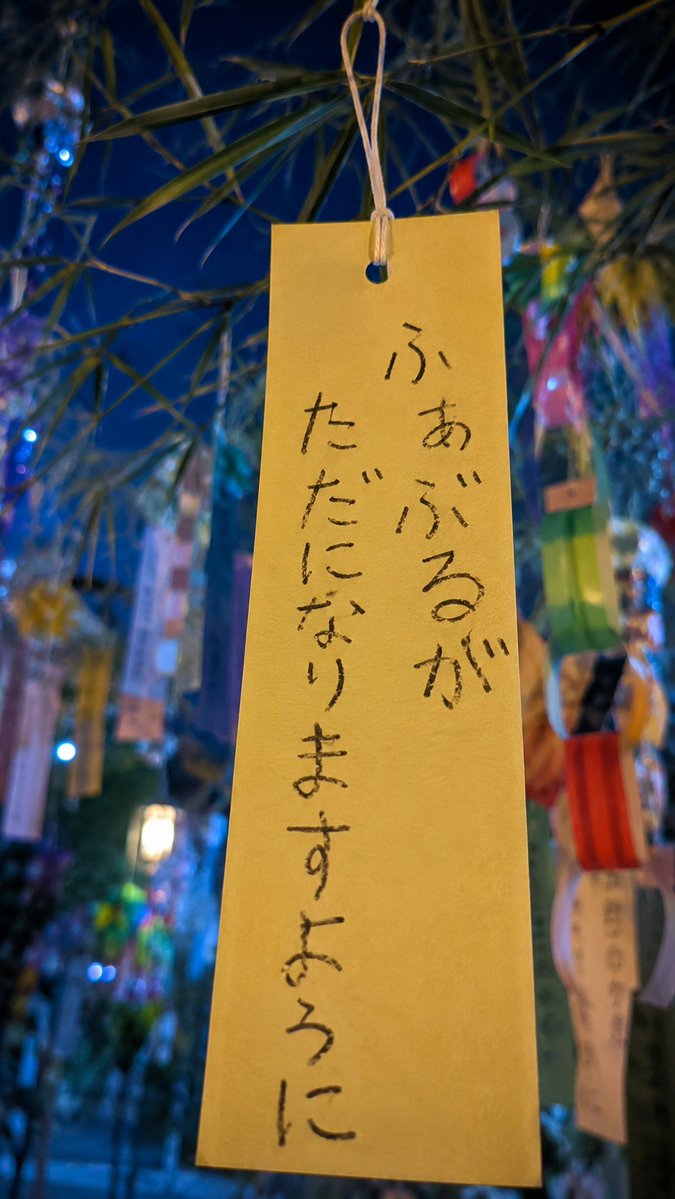 ふぁぶるが
ただになりますように